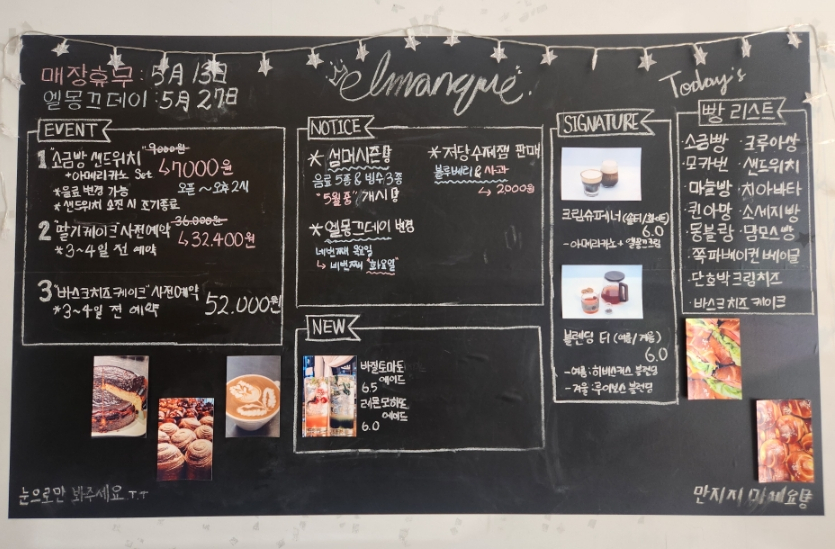 매장휴무 : 5월 13일
엘몽끄데이 : 5월 27일
elmanque!
Today's
EVENT
1 "소금빵 샌드위치" 9000원
+아메리카노 Set ↳7000원
*음료 변경 가능 오픈 ~ 오후 2시
*샌드위치 소진 시 조기종료
2 딸기케이크 사전예약 36.000원
*3~4일 전 예약 ↳32.400원
3 "바스크치즈케이크" 사전예약
*3~4일 전 예약 52.000원
NOTICE
* 썸머시즌!
음료 5종 & 빙수 3종
"5월 중" 개시!
* 엘몽끄데이 변경
네번째 목요일
↳ 네번째 "화요일"
* 저당수제잼 판매
블루베리 & 사과
↳ 2000원
NEW
바질토마토
에이드
6.5
레몬모히또
에이드
6.0
SIGNATURE
크림슈페너 (솔티/화이트)
6.0
-아메리카노 + 엘몽끄크림
블렌딩 티 (여름/겨울)
6.0
-여름 : 히비스커스 블렌딩
-겨울 : 루이보스 블렌딩
빵 리스트
·소금빵 ·크루아상
·모카번 ·샌드위치
·마늘빵 ·치아바타
·퀸아망 ·소세지빵
·몽블랑 ·맘모스빵
·쪽파베이컨 베이글
·단호박크림치즈
·바스크치즈 케이크
눈으로만 봐주세요 ㅜㅜ
만지지 마세요!